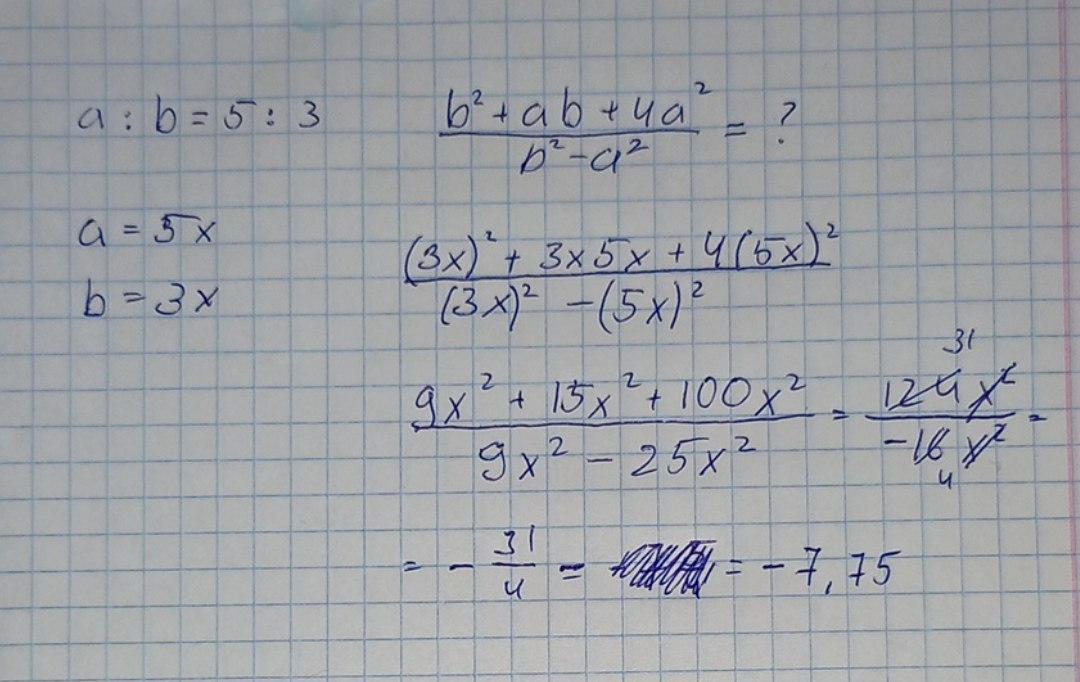 a : b = 5 : 3
(b² + ab + 4a²)/(b² - a²) = ?
a = 5x
b = 3x
((3x)² + 3x5x + 4(5x)²)/((3x)² - (5x)²)
(9x² + 15x² + 100x²)/(9x² - 25x²) = (124x²)/(-16x²) =
31
4
= - 31/4 = = - 7,75